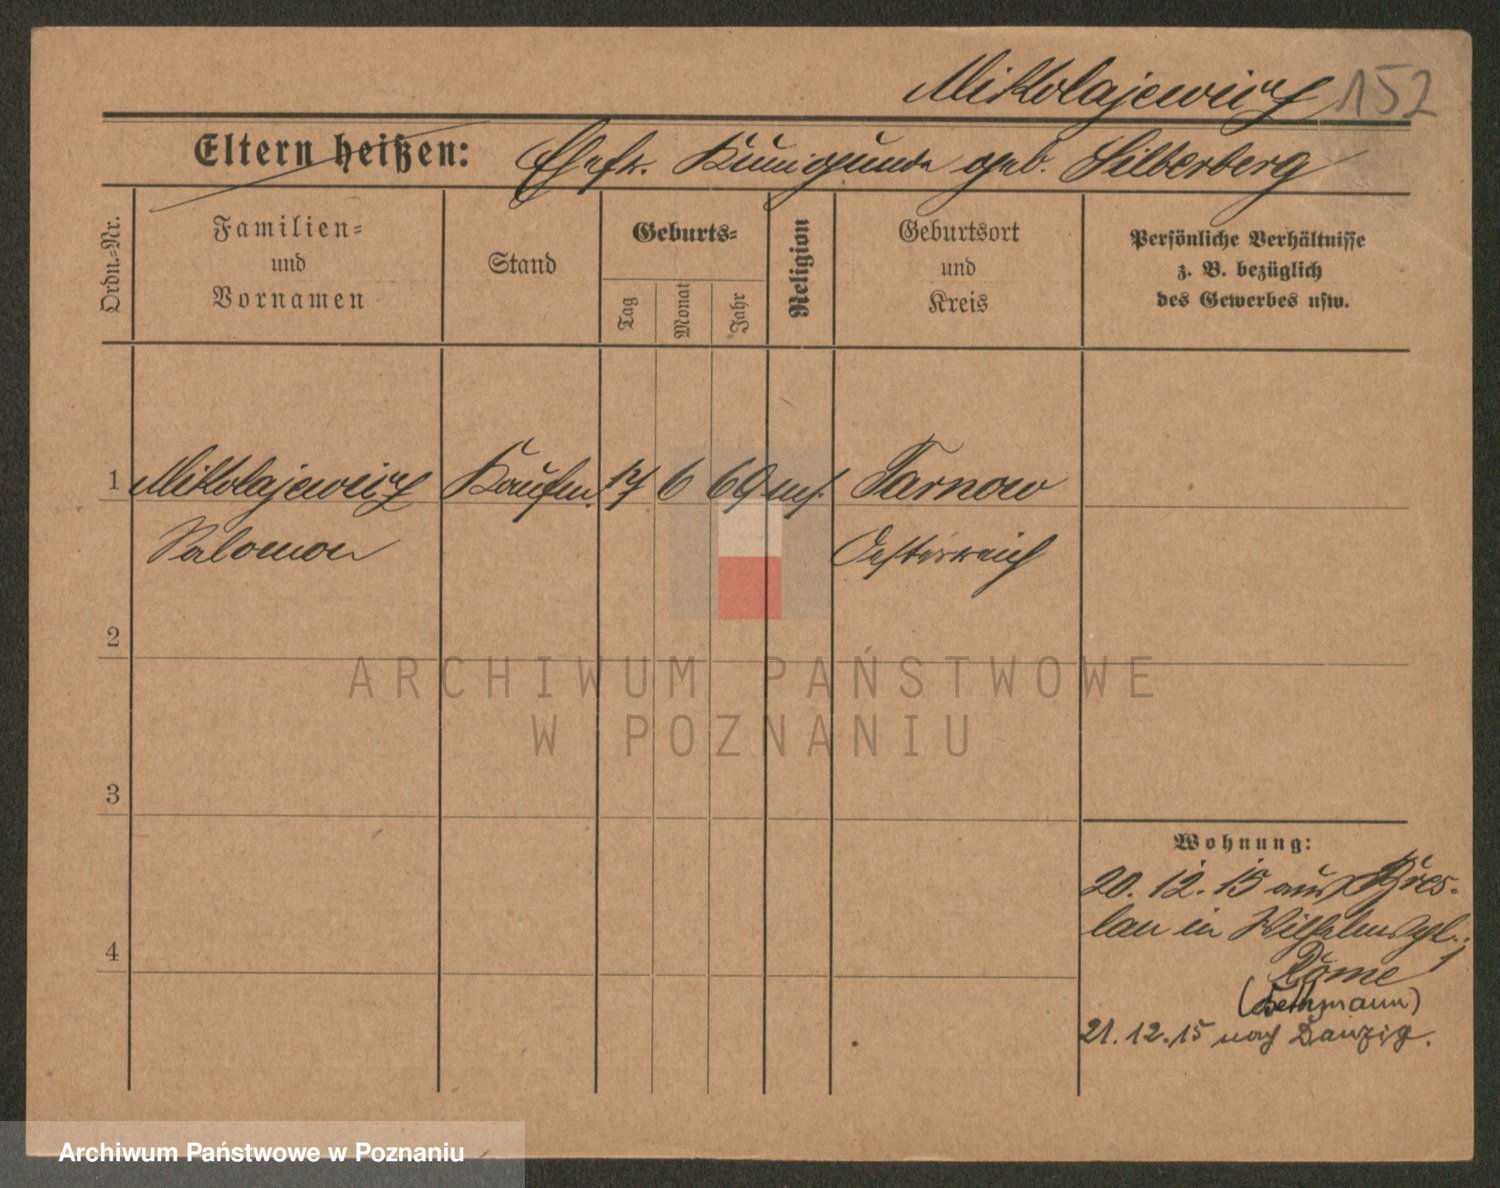 Mikolajewicz 152
Eltern heißen: Ehefr. Kunigunde geb. Silberberg
Ordn.-Nr.
Familien-
und
Vornamen
Stand
Geburts-
Tag
Monat
Jahr
Religion
Geburtsort
und
Kreis
Persönliche Verhältnisse
z. B. bezüglich
des Gewerbes usw.
1 Mikolajewicz Kaufm. 17 6 69 Tarnow
Salomon Oesterreich
2
ARCHIWUM PAŃSTWOWE
W POZNANIU
3
Wohnung:
20.12.15 aus Bres-
lau in
4
Rome
(Bethmann)
21.12.15 nach Danzig.
Archiwum Państwowe w Poznaniu